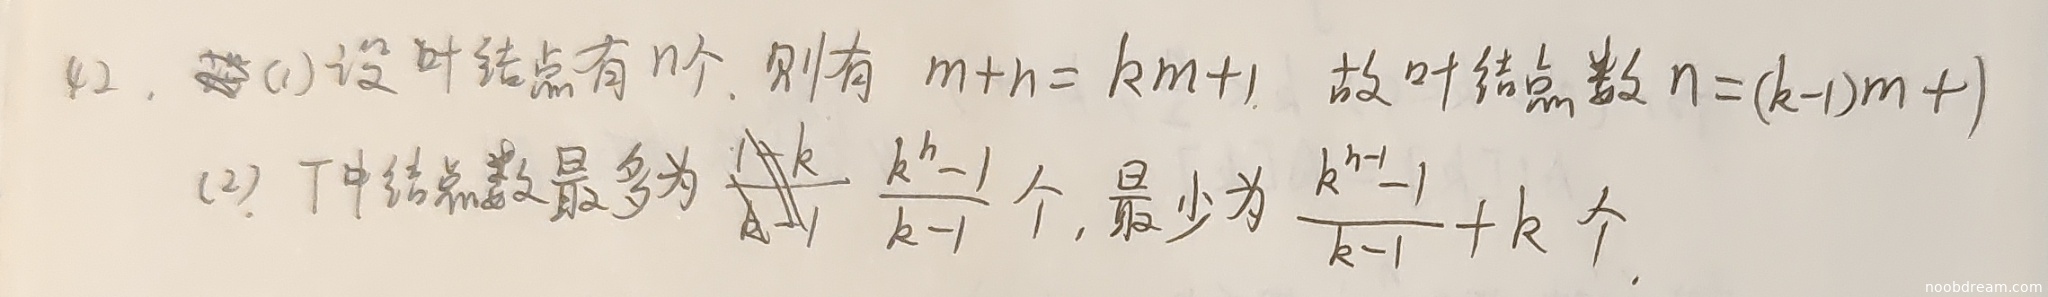 42. (1)设叶结点有n个.则有 m+n=km+1. 故叶结点数n=(k-1)m+1
(2). T中结点数最多为 (k^h-1)/(k-1) 个,最少为 (k^(h-1)-1)/(k-1)+k 个.
noobdream.com